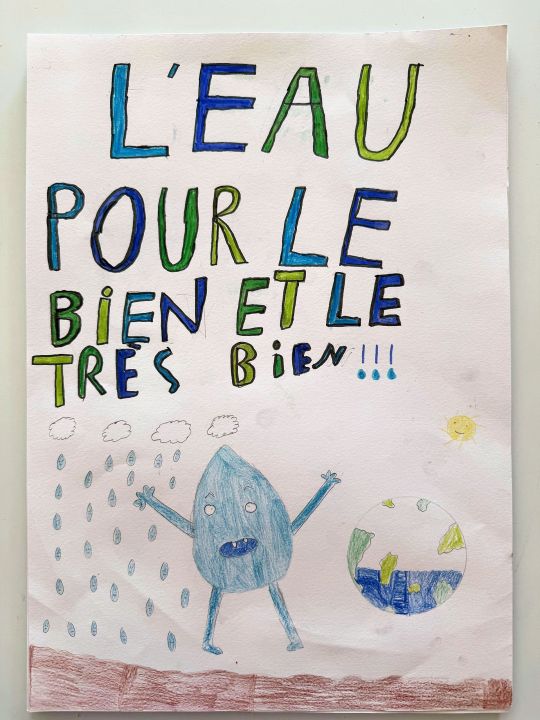 L'EAU
POUR LE
BiEN ET LE
TRÈS BiEN!!!